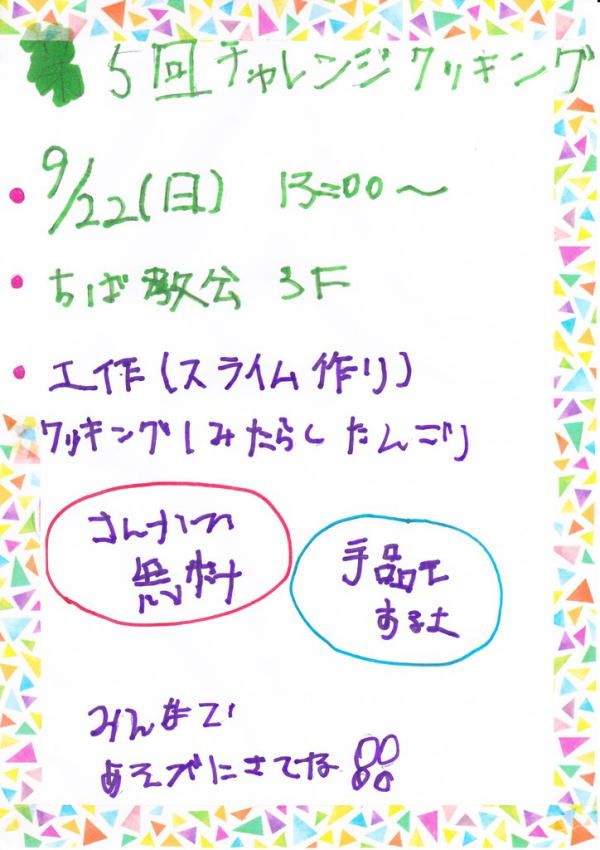 第5回チャレンジクッキング
・9/22(日) 13:00〜
・ちば教公 3F
・工作(スライム作り)
クッキング(みたらしだんご)
さんかひ
無料
手品も
するよ
みんなで
あそびにきてね!!